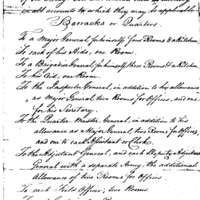 in all amounts to which they may be applicable
Barracks or Quarters.
To a Major General, for himself, four Rooms & a Kitchen
To each of his Aids, one Room.
To a Brigadier General, for himself three Rooms & a Kitchen
To his Aid, one Room.
To the Inspector General, in addition to his allowance
as Major General, two Rooms for Offices, and one
for his Secretary.
To the Quarter Master General, in addition to his
allowance as Major General, two Rooms for Offices,
and one to each Assistant or Clerk.
To the Adjutant General, and each Deputy Adjutant
General with a separate Army, the additional
allowance of two Rooms for Offices.
To each Field Officer, two Rooms